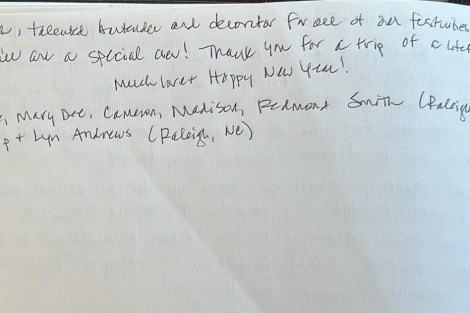 , talented bartender and decorator for all of our festivities
are a special crew! Thank you for a trip of a life
Much love & Happy New Year!
, Mary Dee, Cameron, Madison, Redmond Smith (Raleigh
p + Lyn Andrews (Raleigh, NC)